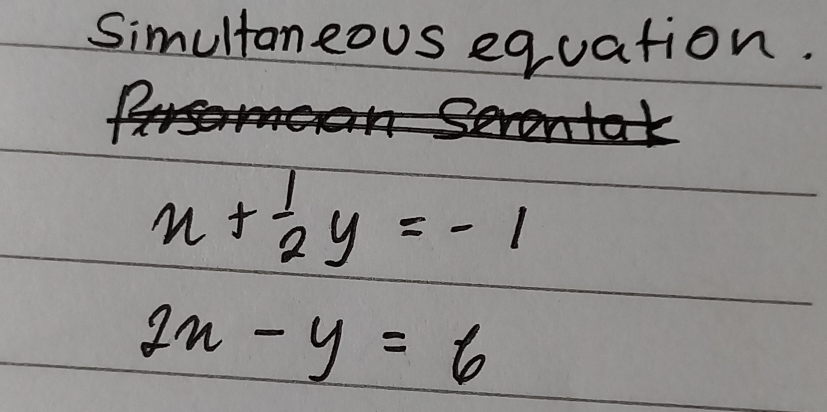 Simultaneous equation.
Persamaan Serentak
x + 1/2 y = - 1
2x - y = 6